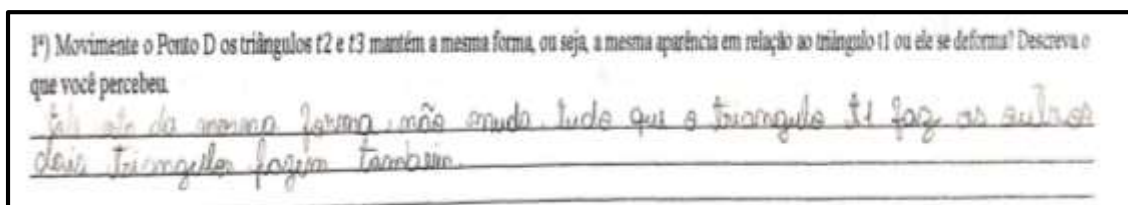 1ª) Movimente o Ponto D os triângulos t2 e t3 mantém a mesma forma, ou seja, a mesma aparência em relação ao triângulo t1 ou ele se deforma? Descreva o
que você percebeu.
da mesma forma, não muda tudo que o triangulo t1 faz os outros
dois triangulos fazem também.